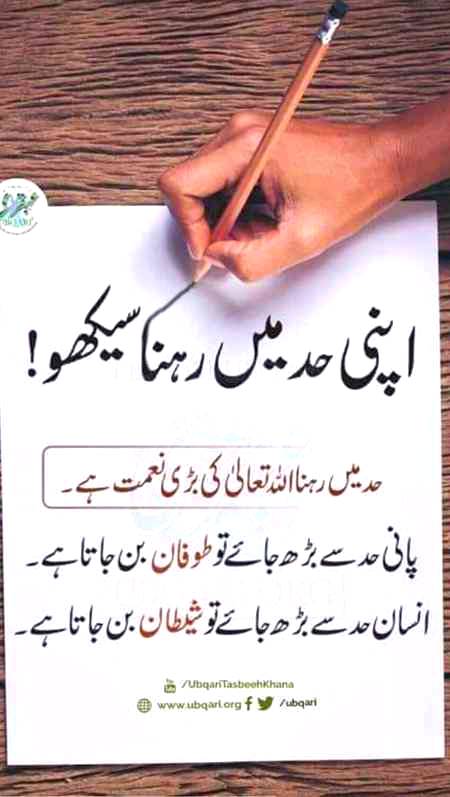 اپنی حد میں رہنا سیکھو!
حد میں رہنا اللہ تعالیٰ کی بڑی نعمت ہے۔
پانی حد سے بڑھ جائے تو طوفان بن جاتا ہے۔
انسان حد سے بڑھ جائے تو شیطان بن جاتا ہے۔
/UbqariTasbeehKhana
www.ubqari.org f /ubqari